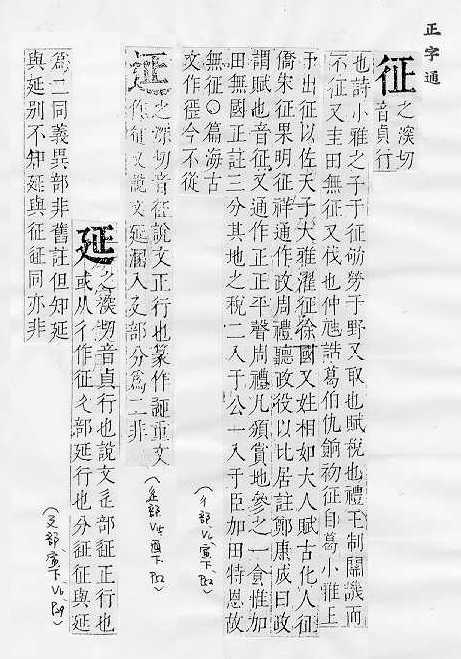 正字通
征
之深切
音貞行
也詩小雅之子于征劬勞于野又取也賦稅也禮王制關譏而
不征又圭田無征又伐也仲虺誥葛伯仇餉初征自葛小雅王
于出征以佐天子大雅濯征徐國又姓相如大人賦古化人征
僑宋征果明征祥通作政周禮聽政役以比居註鄭康成曰政
謂賦也音征又通作正正平聲周禮凡頒賞地參之一食惟加
田無國正註三分其地之稅二入于公一入于臣加田特恩故
無征〇篇海古
文作徰今不從
之深切音征說文正行也篆作𨒌重文
作征又說文延溷入廴部分為二非
延
之深切音貞行也說文辵部延正行也
或从彳作征廴部延行也分征延與延
為二同義異部非舊註但知延
與延別不知延與征延同亦非